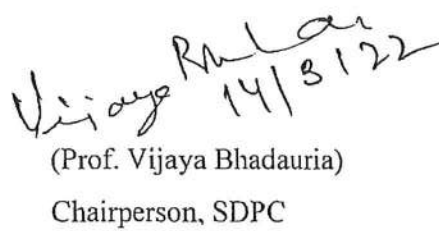 Vijaya
14/3/22
(Prof. Vijaya Bhadauria)
Chairperson, SDPC